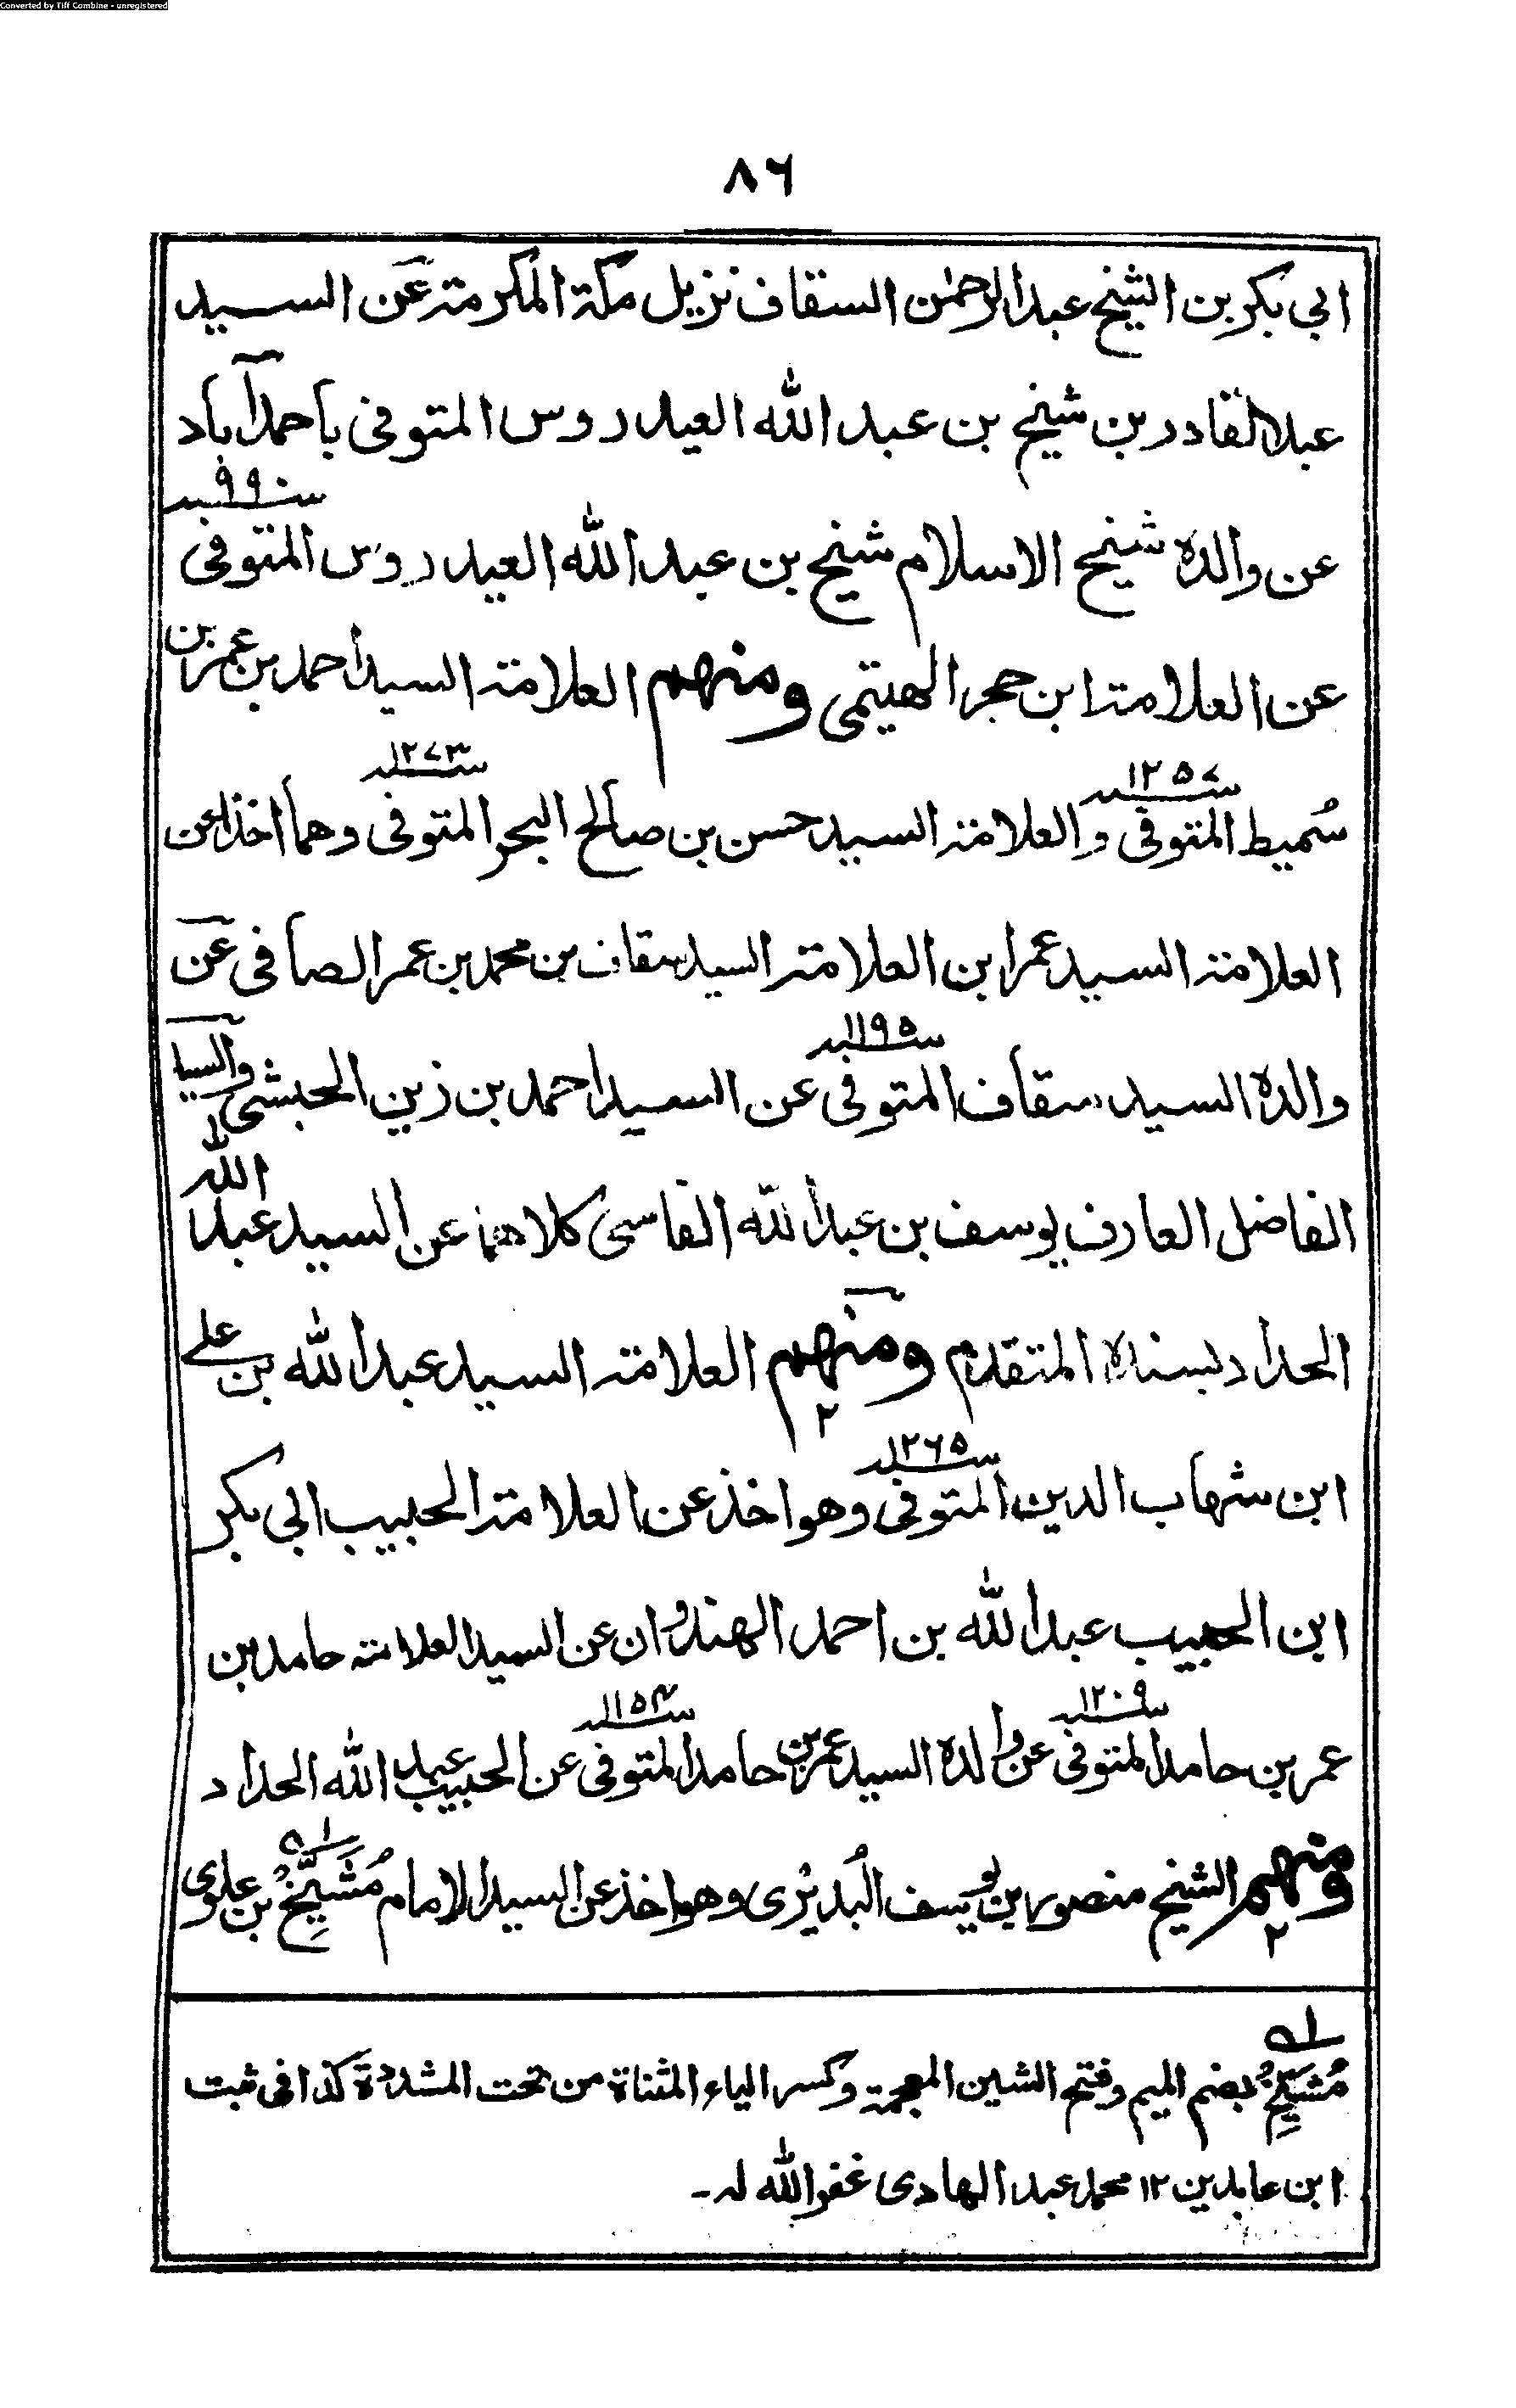 Converted by Tiff Combine - unregistered
٨٦
ابي بكر بن الشيخ عبد الرحمٰن السقاف نزيل مكة المكرمة عن السيد
عبد القادر بن شيخ بن عبد الله العيدروس المتوفى باحمد آباد
عن والده شيخ الاسلام شيخ بن عبد الله العيدروس المتوفى سنة ٩٩٠
عن العلامة ابن حجر الهيتمى ومنهم العلامة السيد احمد بن عمر بن
سُميط المتوفى سنة ١٢٥٧ والعلامة السيد حسن بن صالح البحر المتوفى سنة ١٢٧٣ وهما اخذا عن
العلامة السيد عمر ابن العلامة السيد سقاف بن محمد بن عمر الصافى عن
والده السيد سقاف المتوفى سنة ١١٩٥ عن السيد احمد بن زين الحبشى والسيد
الفاضل العارف يوسف بن عبد الله الفاسى كلاهما عن السيد عبد الله
الحداد بسنده المتقدم ومنهم ٢ العلامة السيد عبد الله بن على
ابن شهاب الدين المتوفى سنة ١٢٦٥ وهو اخذ عن العلامة الحبيب ابى بكر
ابن الحبيب عبد الله بن احمد الهندوان عن السيد العلامة حامد بن
عمر بن حامد المتوفى سنة ١٢٠٩ عن والده السيد عمر بن حامد المتوفى سنة ١١٥٤ عن الحبيب عبد الله الحداد
ومنهم ٢ الشيخ منصور بن يوسف البُديرى وهو اخذ عن السيد الامام مُشَيِّخ بن علوى
مُشَيِّخ بضم الميم وفتح الشين المعجمة وكسر الياء المثناة من تحت المشددة كذا فى ثبت
ابن عابدين ١٢ محمد عبد الهادى غفر الله له-